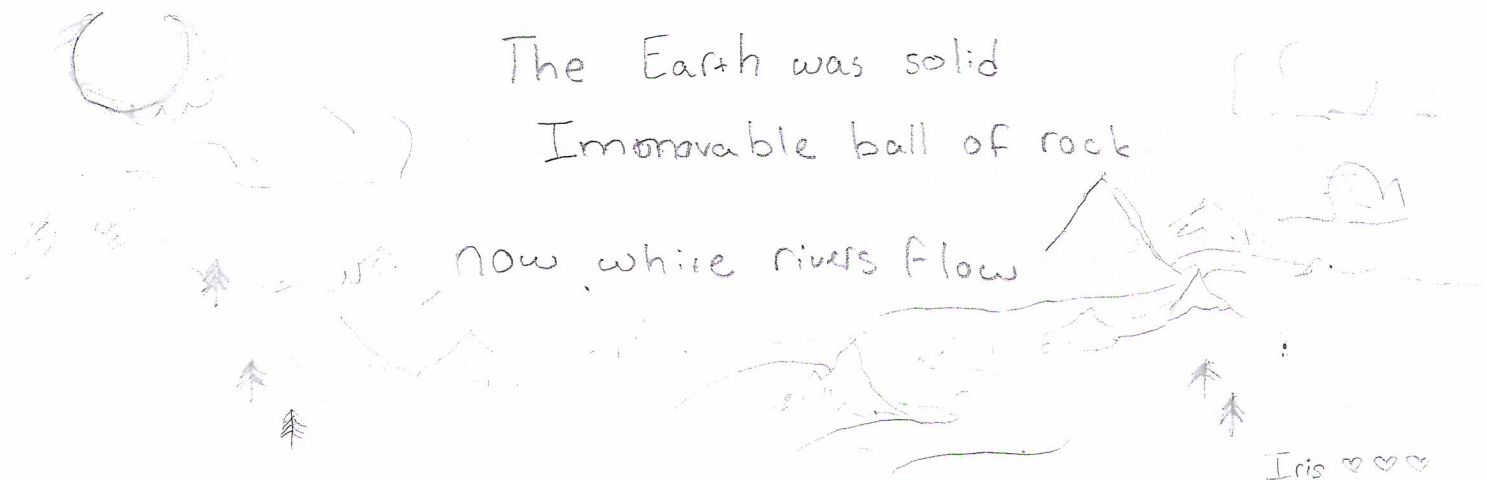 The Earth was solid
Immovable ball of rock
now white rivers flow
Iris ♡♡♡